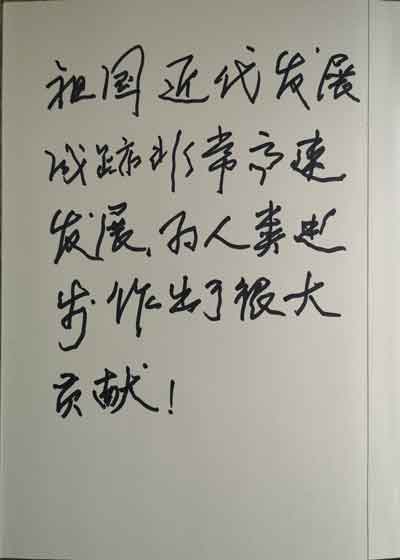 祖国近代发展
成迹非常高速
发展、为人类进
步作出了很大
贡献！